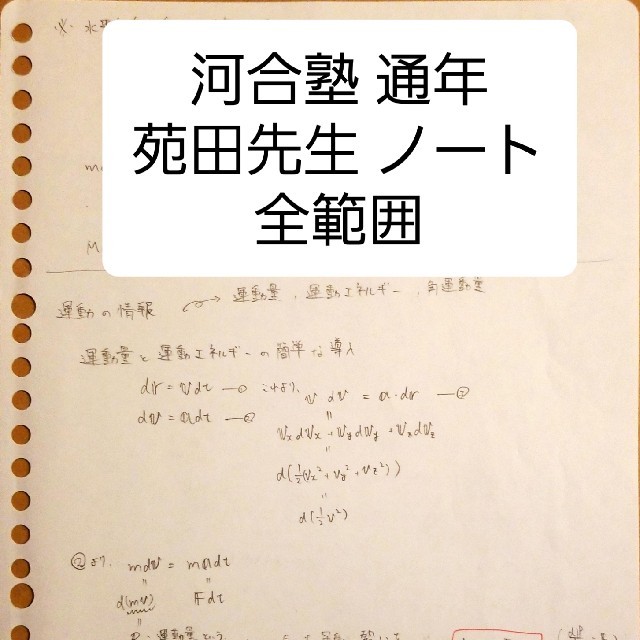 ※ 水平
河合塾 通年
苑田先生 ノート
全範囲
m
M
運動の情報 運動量、運動エネルギー、角運動量
運動量と運動エネルギーの簡単な導入
dr = vdt —① これより、 v・dv = a・dr —③
dv = adt —②
=
vxdvx + vydvy + vzdvz
=
d(½(vx²+vy²+vz²))
=
d(½v²)
②より、 mdv = madt
= =
d(mv) Fdt
P : 運動量という